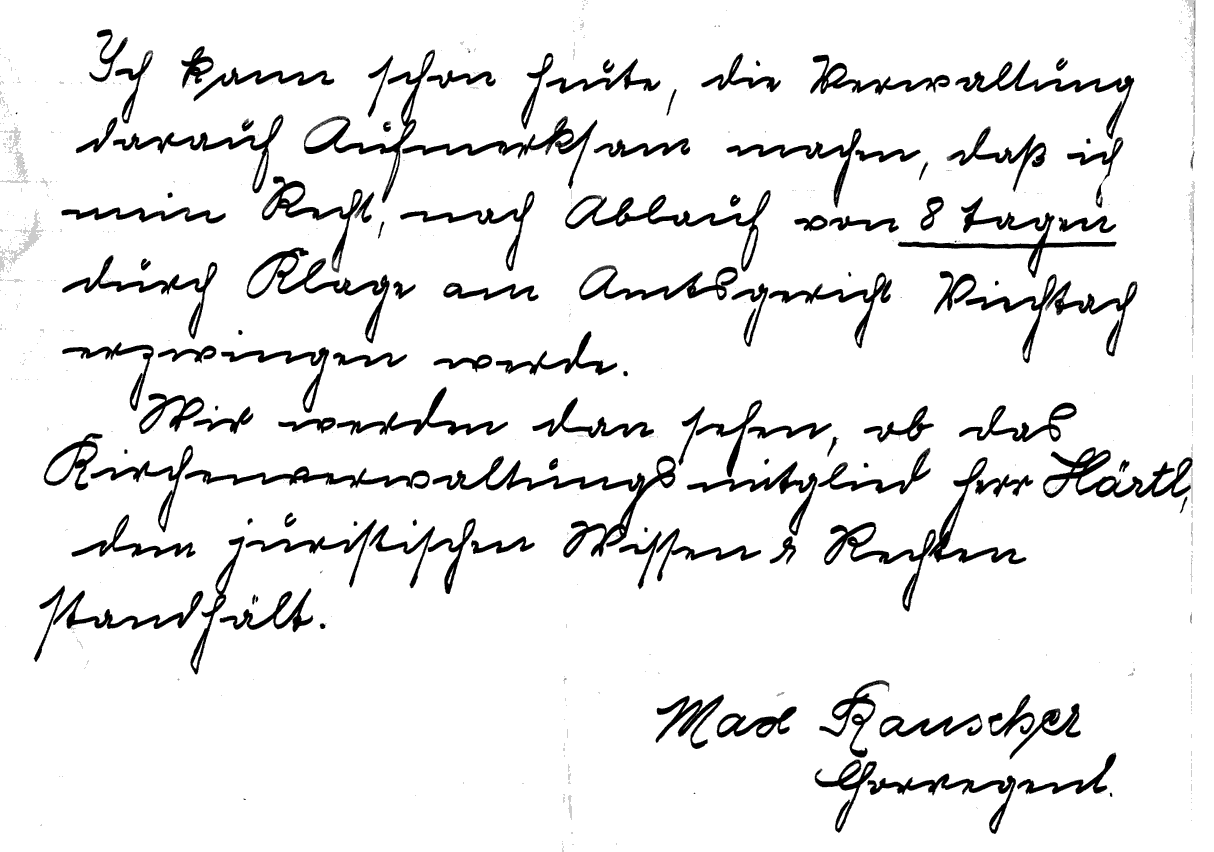 Ich kann schon heute, die Verwaltung
darauf Aufmerksam machen, daß ich
mein Recht, nach Ablauf von 8 tagen
durch Klage am Amtsgericht Viechtach
erzwingen werde.
Wir werden dan sehen, ob das
Kirchenverwaltungsmitglied Herr Härtl,
dem juristischen Wissen & Rechten
standhält.
Max Rauscher
Chorregent.